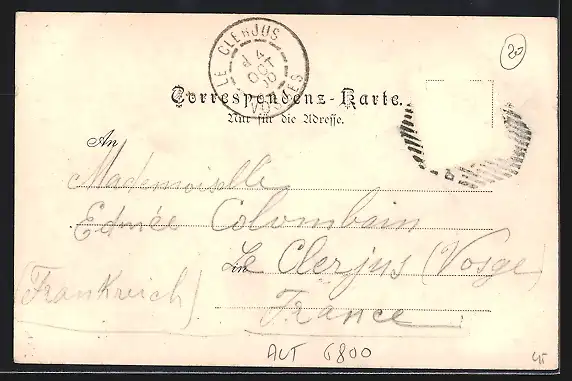 20
LE CLERJUS
4
OCT
00
VOSGES
Correspondenz-Karte.
Nur für die Adresse.
An
Mademoiselle
Edmée Colombain
in Le Clerjus (Vosge)
(Frankreich)
France
AUT 6800
45